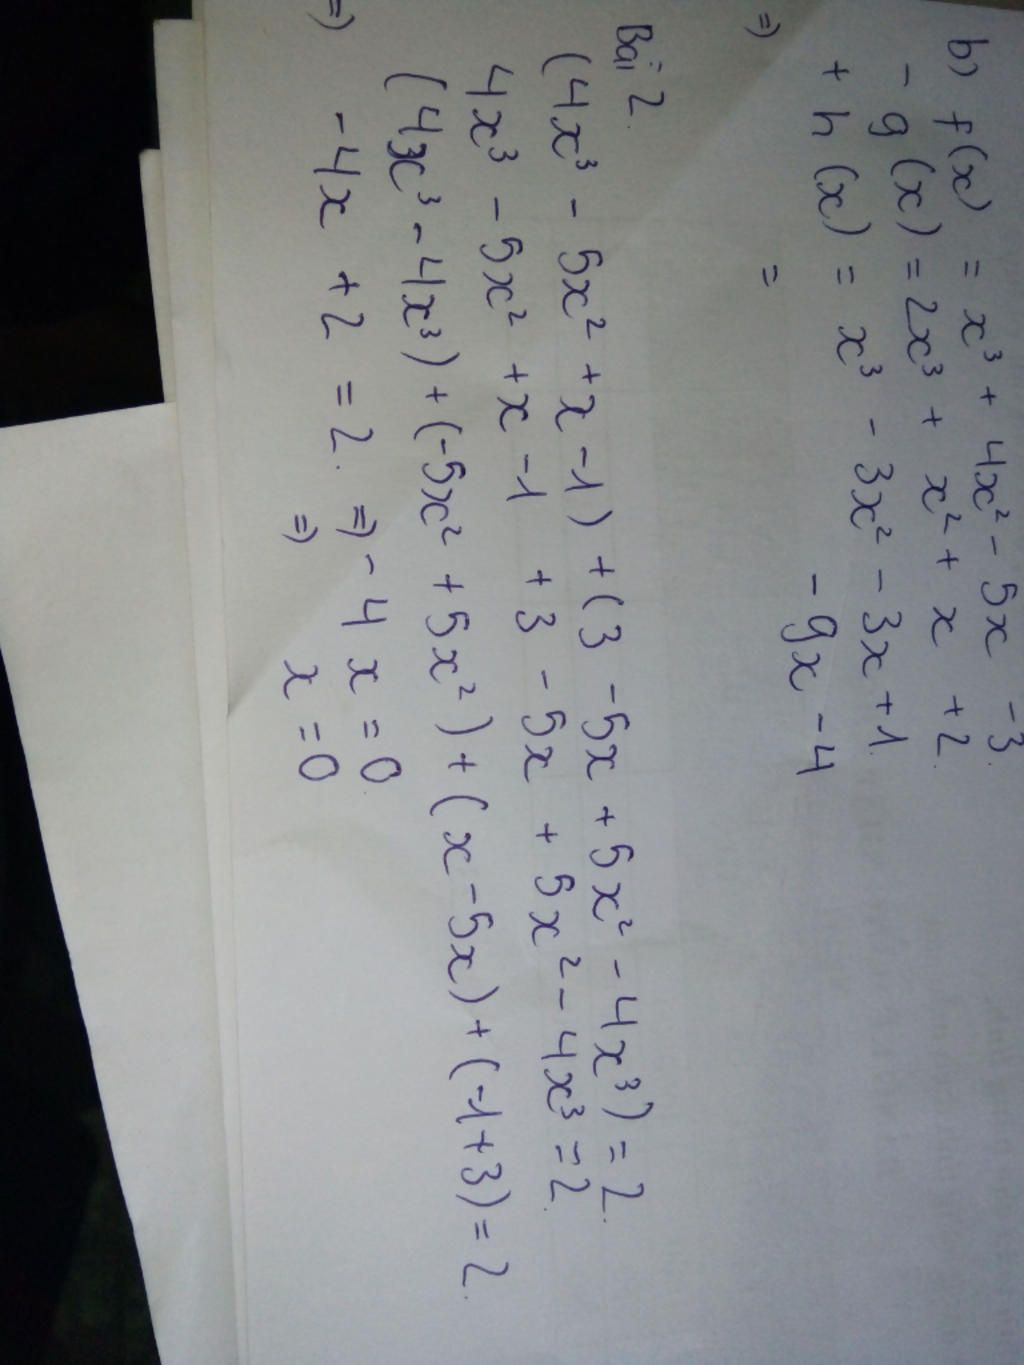 b) f(x) = x³ + 4x² - 5x - 3.
- g(x) = 2x³ + x² + x + 2.
+ h(x) = x³ - 3x² - 3x + 1.
⇒ = - 9x - 4
Bài 2.
(4x³ - 5x² + x - 1) + (3 - 5x + 5x² - 4x³) = 2.
4x³ - 5x² + x - 1 + 3 - 5x + 5x² - 4x³ = 2.
(4x³ - 4x³) + (-5x² + 5x²) + (x - 5x) + (-1 + 3) = 2.
⇒ - 4x + 2 = 2. ⇒ - 4x = 0
⇒ x = 0